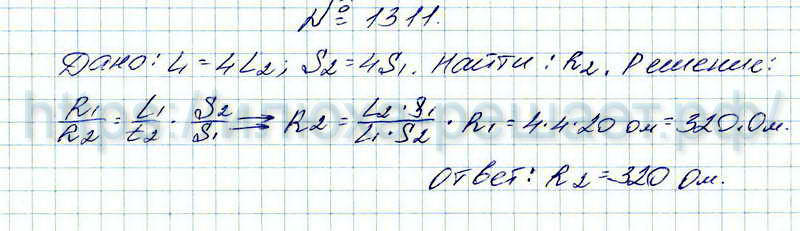 № 1311.
Дано: L1 = 4L2; S2 = 4S1. Найти: R2. Решение:
R1/R2 = L1/L2 · S2/S1 ⇒ R2 = L2·S1/L1·S2 · R1 = 4·4·20 Ом = 320 Ом.
Ответ: R2 = 320 Ом.